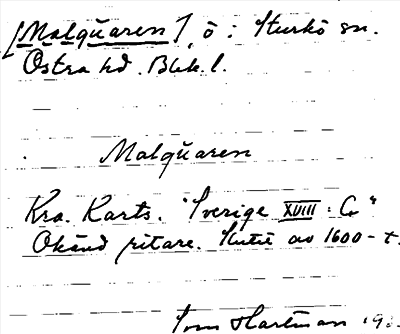 [Malquaren], ö: Sturkö sn.
Östra hd. Blek. l.
Malquaren
Kra. Karts. "Sverige XVIII: C"
Okänd ritare. Slutet av 1600-t.
Tom Hartman 19